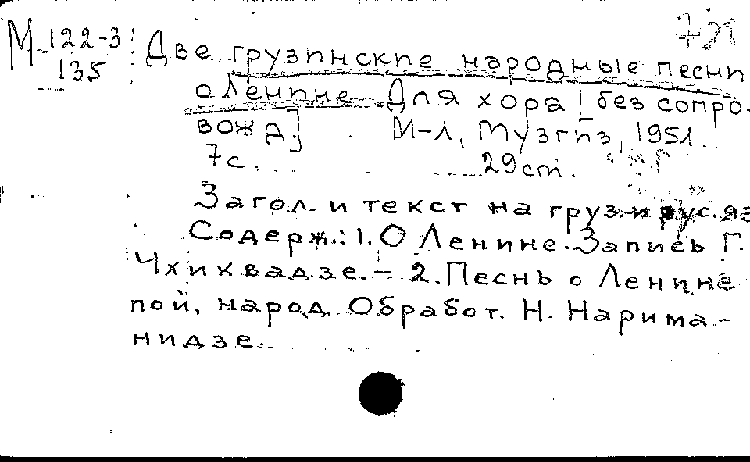 М-122-3
135
Две грузинские народные песни
о Ленине. Для хора [без сопро-
вожд.]
М-л, Музгиз, 1951.
7с. 29см.
Загол. и текст на груз. и рус. яз
Содерж.: 1. О Ленине. Запись Г.
Чхиквадзе. – 2. Песнь о Ленине
пой, народ. Обработ. Н. Нарима-
нидзе.